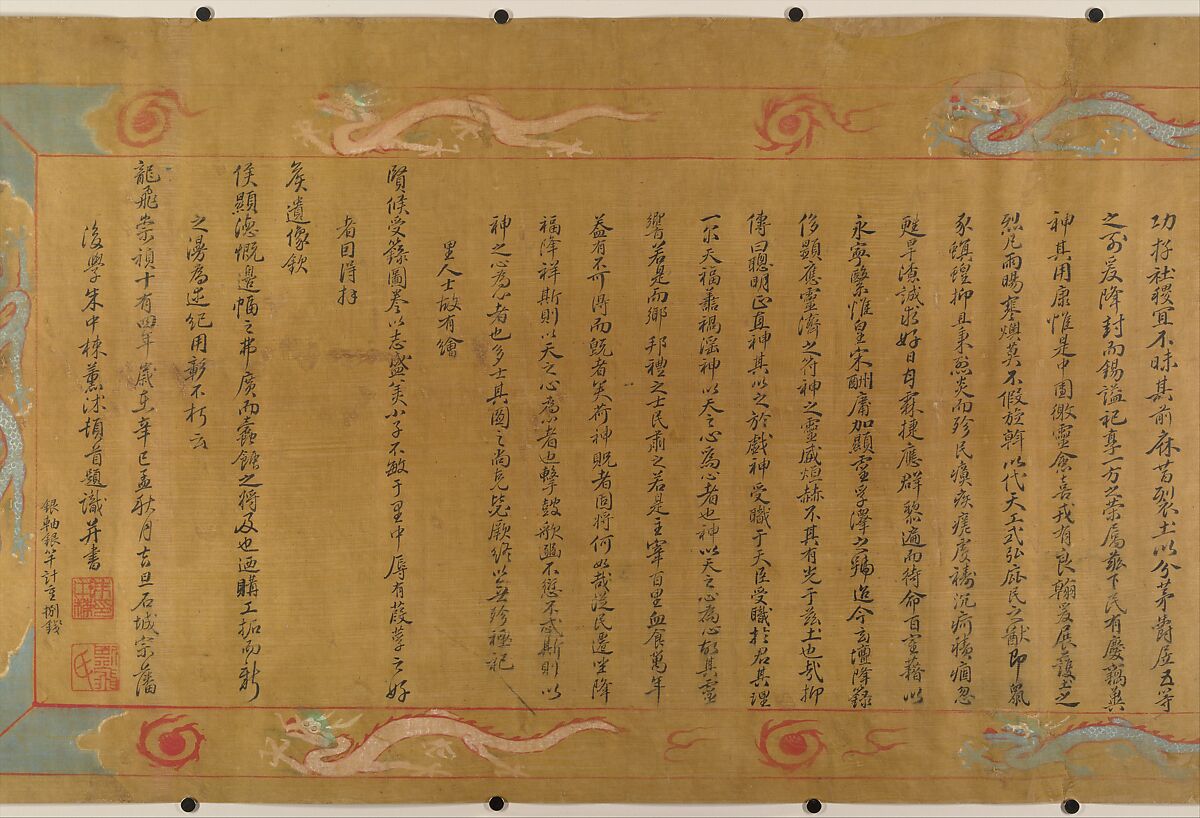 功存社稷宜不昧其前麻昔裂土以分茅爵居五等
之前爰降封而錫謚祀享一方之榮屬茲下民有慶竊冀
神其用康惟是中國徼靈念吾我有良翰爰展護土之
烈凡雨暘寒燠莫不假旋斡以代天工式弘庇民之猷即鼠
豕螟蝗抑且秉烈炎而殄民瘼疾瘥虔禱沉疴積痼忽
甦旱潦誠求好日甘霖捷應群黎遍而待命百室藉以
永寧繄惟皇宋酬庸加顯靈孚澤之號迨今玄壇降籙
侈顯應靈濟之符神之靈威烜赫不其有光于茲土也哉抑
傳曰聰明正直神其以之於戲神受職于天臣受職於君其理
一尔天福善禍淫神以天之心為心者也神以天之心為心故其靈
響若是而鄉邦禮之士民肅之若是主宰百里血食萬年
益有不可得而旣者矣荷神貺者固將何如哉茂民遣坐降
福降祥斯則以天之心為心者也擊鼓歌豳不愆不忒斯則以
神之心為心者也多士其圖之尚克毖厥終以無殄禋祀
里人士故有繪
賢侯受籙圖卷以志盛美小子不敏于里中辱有葭莩之好
者因得拜
侯遺像欽
侯顯德慨邊幅之弗廣而蠹蝕之將及也迺購工拓而新
之漫為述紀用彰不朽云
龍飛崇禎十有四年歲在辛巳孟秋月吉旦石城宗藩
後學朱中棟薰沐頓首題識并書
銀軸銀竿計重捌錢